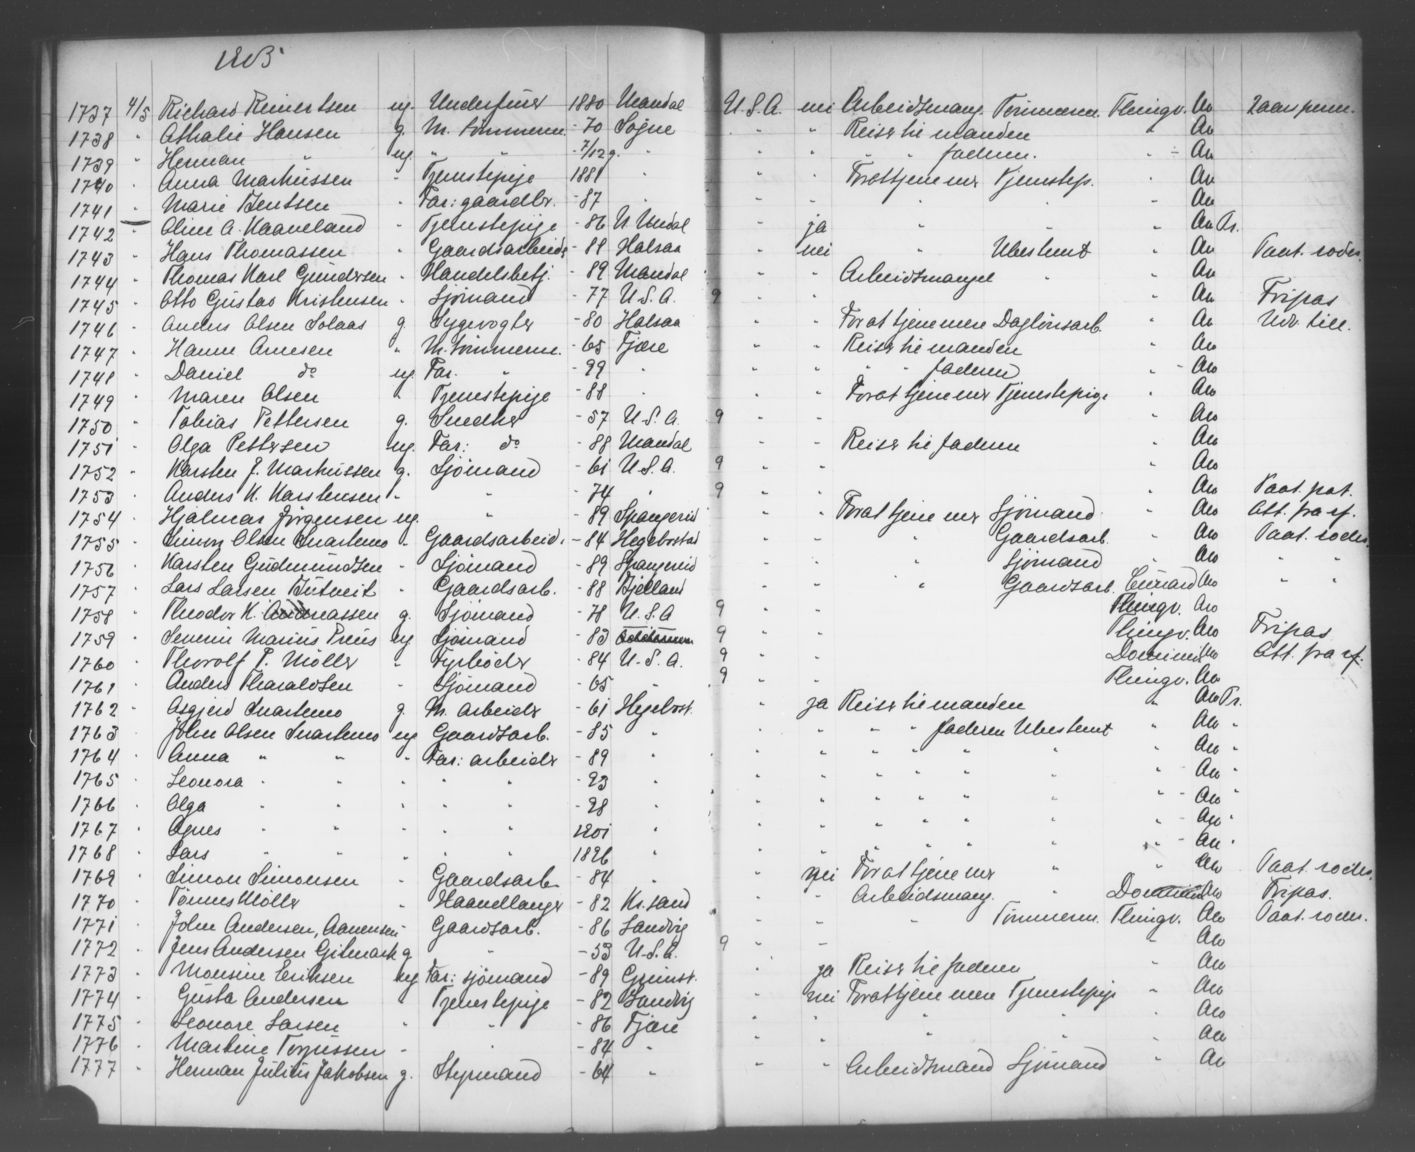 1737 4/5 Richard Reinertsen ug. 1880 Mandal U.S.A. nei Arbeidsmang. Tømmerm. Thingv. 2 aar perm.
1738 " Athalie Hansen g. M. tømmerm. - 70 Søgne " " Reise til manden " "
1739 " Herman " ug " " - 7/12 " " " " faderen. "
1740 " Anna Markussen " Tjenestepige 1881 " " " For at tjene mer Tjenestep. "
1741 " Marie Bentsen " Far: gaardbr. - 87 " " " " "
1742 " Oline A. Haaveland " Tjenestepige - 86 U. Undal " ja " " " Tr.
1743 " Hans Thomassen " Gaardsarbeide - 88 Halsaa " nei " Ubestemt "
1744 " Thomas Karl Gundersen " Handelsbetj. - 89 Mandal " " Arbeidsmangel " "
1745 " Otto Gustav Kristensen " Sjømand - 77 U.S.A. 9 " " Fripas
1746 " Anders Olsen Solaas g Sygevogter - 80 Halsaa " " For at tjene mere Daglønsarb. "
1747 " Hanne Annesen " M. tømmerm. - 65 Fjære " " Reise til manden "
1748 " Daniel do ug Far. " - 99 " " " " " faderen "
1749 " Maren Olsen " Tjenestepige - 88 " " " For at tjene mer Tjenestepige "
1750 " Tobias Pettersen g. Smedker - 57 U.S.A. 9 " "
1751 " Olga Pettersen ug. Far: do - 88 Mandal " " Reise til faderen "
1752 " Karsten J. Markussen g. Sjømand - 61 U.S.A. 9 " "
1753 " Anders K. Karstensen " " - 74 " 9 " "
1754 " Hjalmar Jørgensen ug. " - 89 Spangerid " " For at tjene mer Sjømand " Att. fra sf.
1755 " Simon Olsen Snartemo " Gaardsarbeid. - 84 Hegebostad " " " Gaardsarb. "
1756 " Karsten Gudmundsen " Sjømand - 89 Spangerid " " " Sjømand " "
1757 " Lars Larsen " Gaardsarb. - 88 Bjelland " " " Gaardsarb. Cunard " "
1758 " Theodor K. g. Sjømand - 78 U.S.A 9 " " Thingv.
1759 " Severin Marius Preus ug Sjømand - 83 9 " " Thingv. Fripas
1760 " Thorolf P. Møller " Fyrbøder - 84 U.S.A. 9 " " Dominion Att. fra sf.
1761 " Anders Tharaldsen " Sjømand - 65 " 9 " " Thingv.
1762 " Asgjerd Snartemo g. M. arbeider - 61 Hegebost. " ja Reise til manden " Tr.
1763 " John Olsen Snartemo ug Gaardsarb. - 85 " " " " " faderen Ubestemt " "
1764 " Anna " " " Far: arbeider - 89 " " " " " " " " "
1765 " Leonora " " " " " - 93 " " " " " " " " "
1766 " Olga " " " " " - 98 " " " " " " " " "
1767 " Agnes " " " " " 1901 " " " " " " " " "
1768 " Lars " " " " " 1896 " " " " " " " " "
1769 " Simon Simonsen " Gaardsarb. - 84 " " nei For at tjene mer " "
1770 " Tønnes Møller " Haandlanger - 82 Kr.sand " " Arbeidsmang. " Dominion Fripas.
1771 " John Andersen, Aanensen " Gaardsarb. - 86 Landvig " " " Tømmerm. Thingv.
1772 " Jens Andersen Gitmark g " - 53 U.S.A. 9 " " "
1773 " Monsine Eriksen ug Far: sjømand - 89 Grimst. " ja Reise til faderen "
1774 " Gusta Andersen " Tjenestepige - 82 Landvig " nei For at tjene mere Tjenestepige "
1775 " Leonore Larsen " " - 86 Fjære " " " " "
1776 " Martine Torjussen " " - 84 " " " " " "
1777 " Herman Julius Jakobsen g. Styrmand - 64 " " " Arbeidsmand Sjømand "